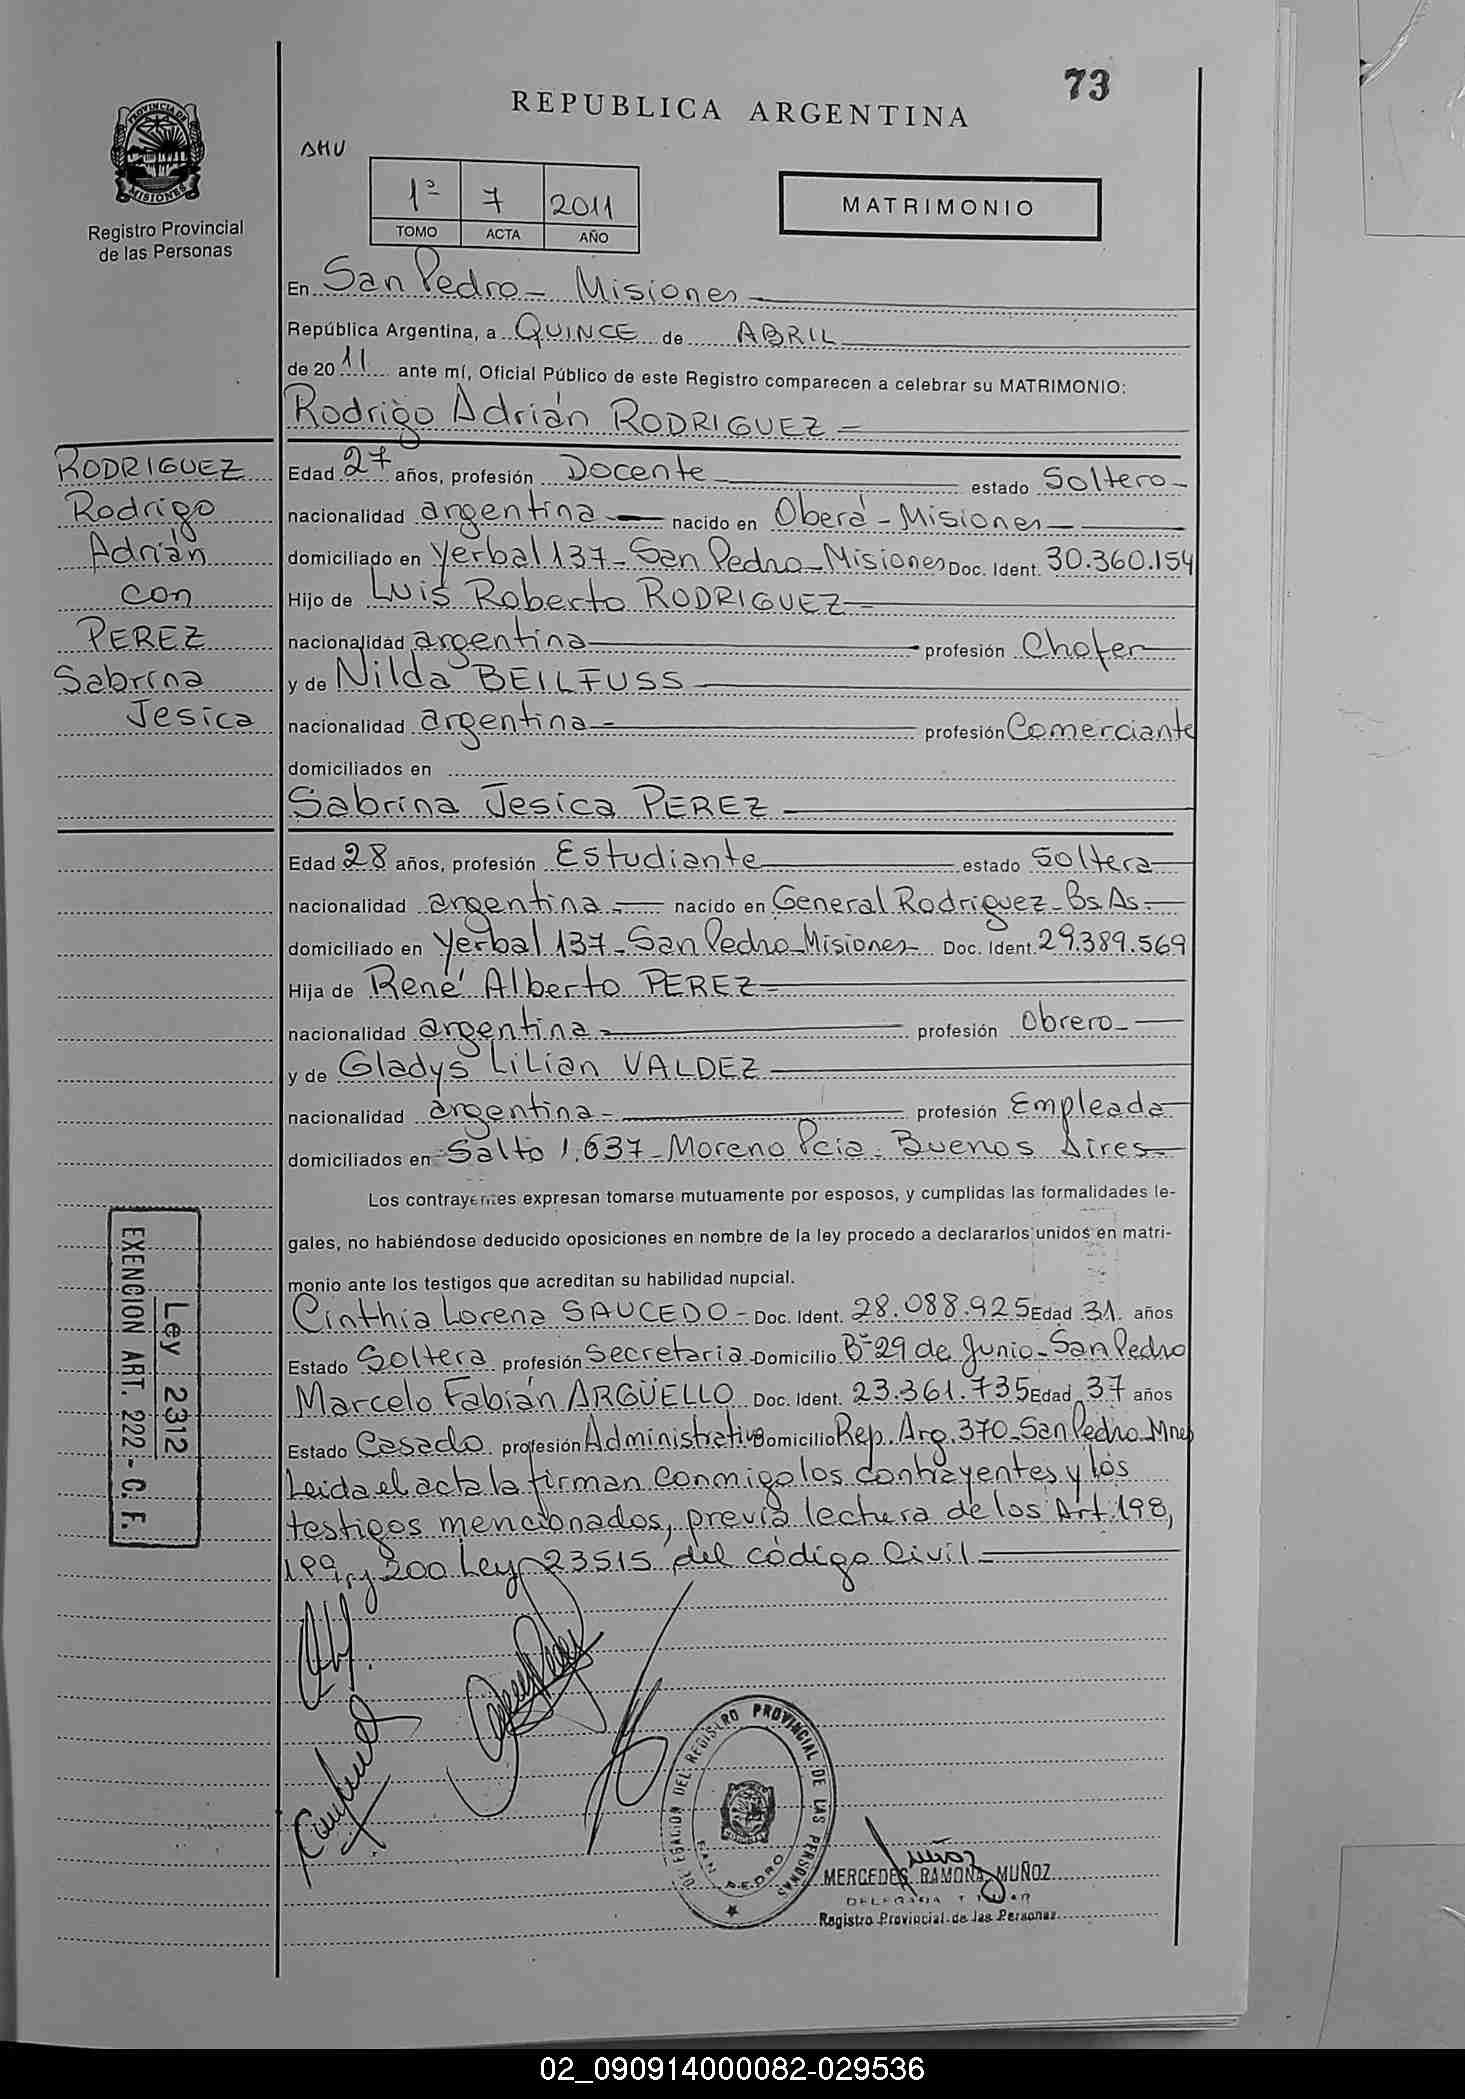 73
REPUBLICA ARGENTINA
PROVINCIA DE MISIONES
Registro Provincial
de las Personas
DHU
1º 7 2011
TOMO ACTA AÑO
MATRIMONIO
En San Pedro - Misiones
República Argentina, a QUINCE de ABRIL
de 2011 ante mí, Oficial Público de este Registro comparecen a celebrar su MATRIMONIO:
Rodrigo Adrián RODRIGUEZ
RODRIGUEZ
Rodrigo
Adrián
con
PEREZ
Sabrina
Jesica
Edad 27 años, profesión Docente estado Soltero
nacionalidad argentina nacido en Oberá - Misiones
domiciliado en Yerbal 137 - San Pedro - Misiones Doc. Ident. 30.360.154
Hijo de Luis Roberto RODRIGUEZ
nacionalidad argentina profesión Chofer
y de Nilda BEILFUSS
nacionalidad argentina profesión Comerciante
domiciliados en
Sabrina Jesica PEREZ
Edad 28 años, profesión Estudiante estado Soltera
nacionalidad argentina nacido en General Rodriguez - Bs. As.
domiciliado en Yerbal 137 - San Pedro - Misiones Doc. Ident. 29.389.569
Hija de René Alberto PEREZ
nacionalidad argentina profesión Obrero
y de Gladys Lilian VALDEZ
nacionalidad argentina profesión Empleada
domiciliados en Salto 1.637 - Moreno Pcia. Buenos Aires
Los contrayentes expresan tomarse mutuamente por esposos, y cumplidas las formalidades le-
gales, no habiéndose deducido oposiciones en nombre de la ley procedo a declararlos unidos en matri-
monio ante los testigos que acreditan su habilidad nupcial.
Cinthia Lorena SAUCEDO - Doc. Ident. 28.088.925 Edad 31 años
Estado Soltera profesión Secretaria Domicilio Bº 29 de Junio - San Pedro
Marcelo Fabián ARGÜELLO Doc. Ident. 23.361.735 Edad 37 años
Estado Casado profesión Administrativo Domicilio Rep. Arg. 370 - San Pedro - Mnes
Leida el acta la firman conmigo los contrayentes y los
testigos mencionados, previa lectura de los Art. 198,
199, y 200 Ley 23515 del código Civil
Ley 2312
EXENCION ART. 222 - C. F.
DELEGACION DEL REGISTRO PROVINCIAL DE LAS PERSONAS
SAN PEDRO
MERCEDES RAMONA MUÑOZ
DELEGADA TITULAR
Registro Provincial de las Personas
02_090914000082-029536